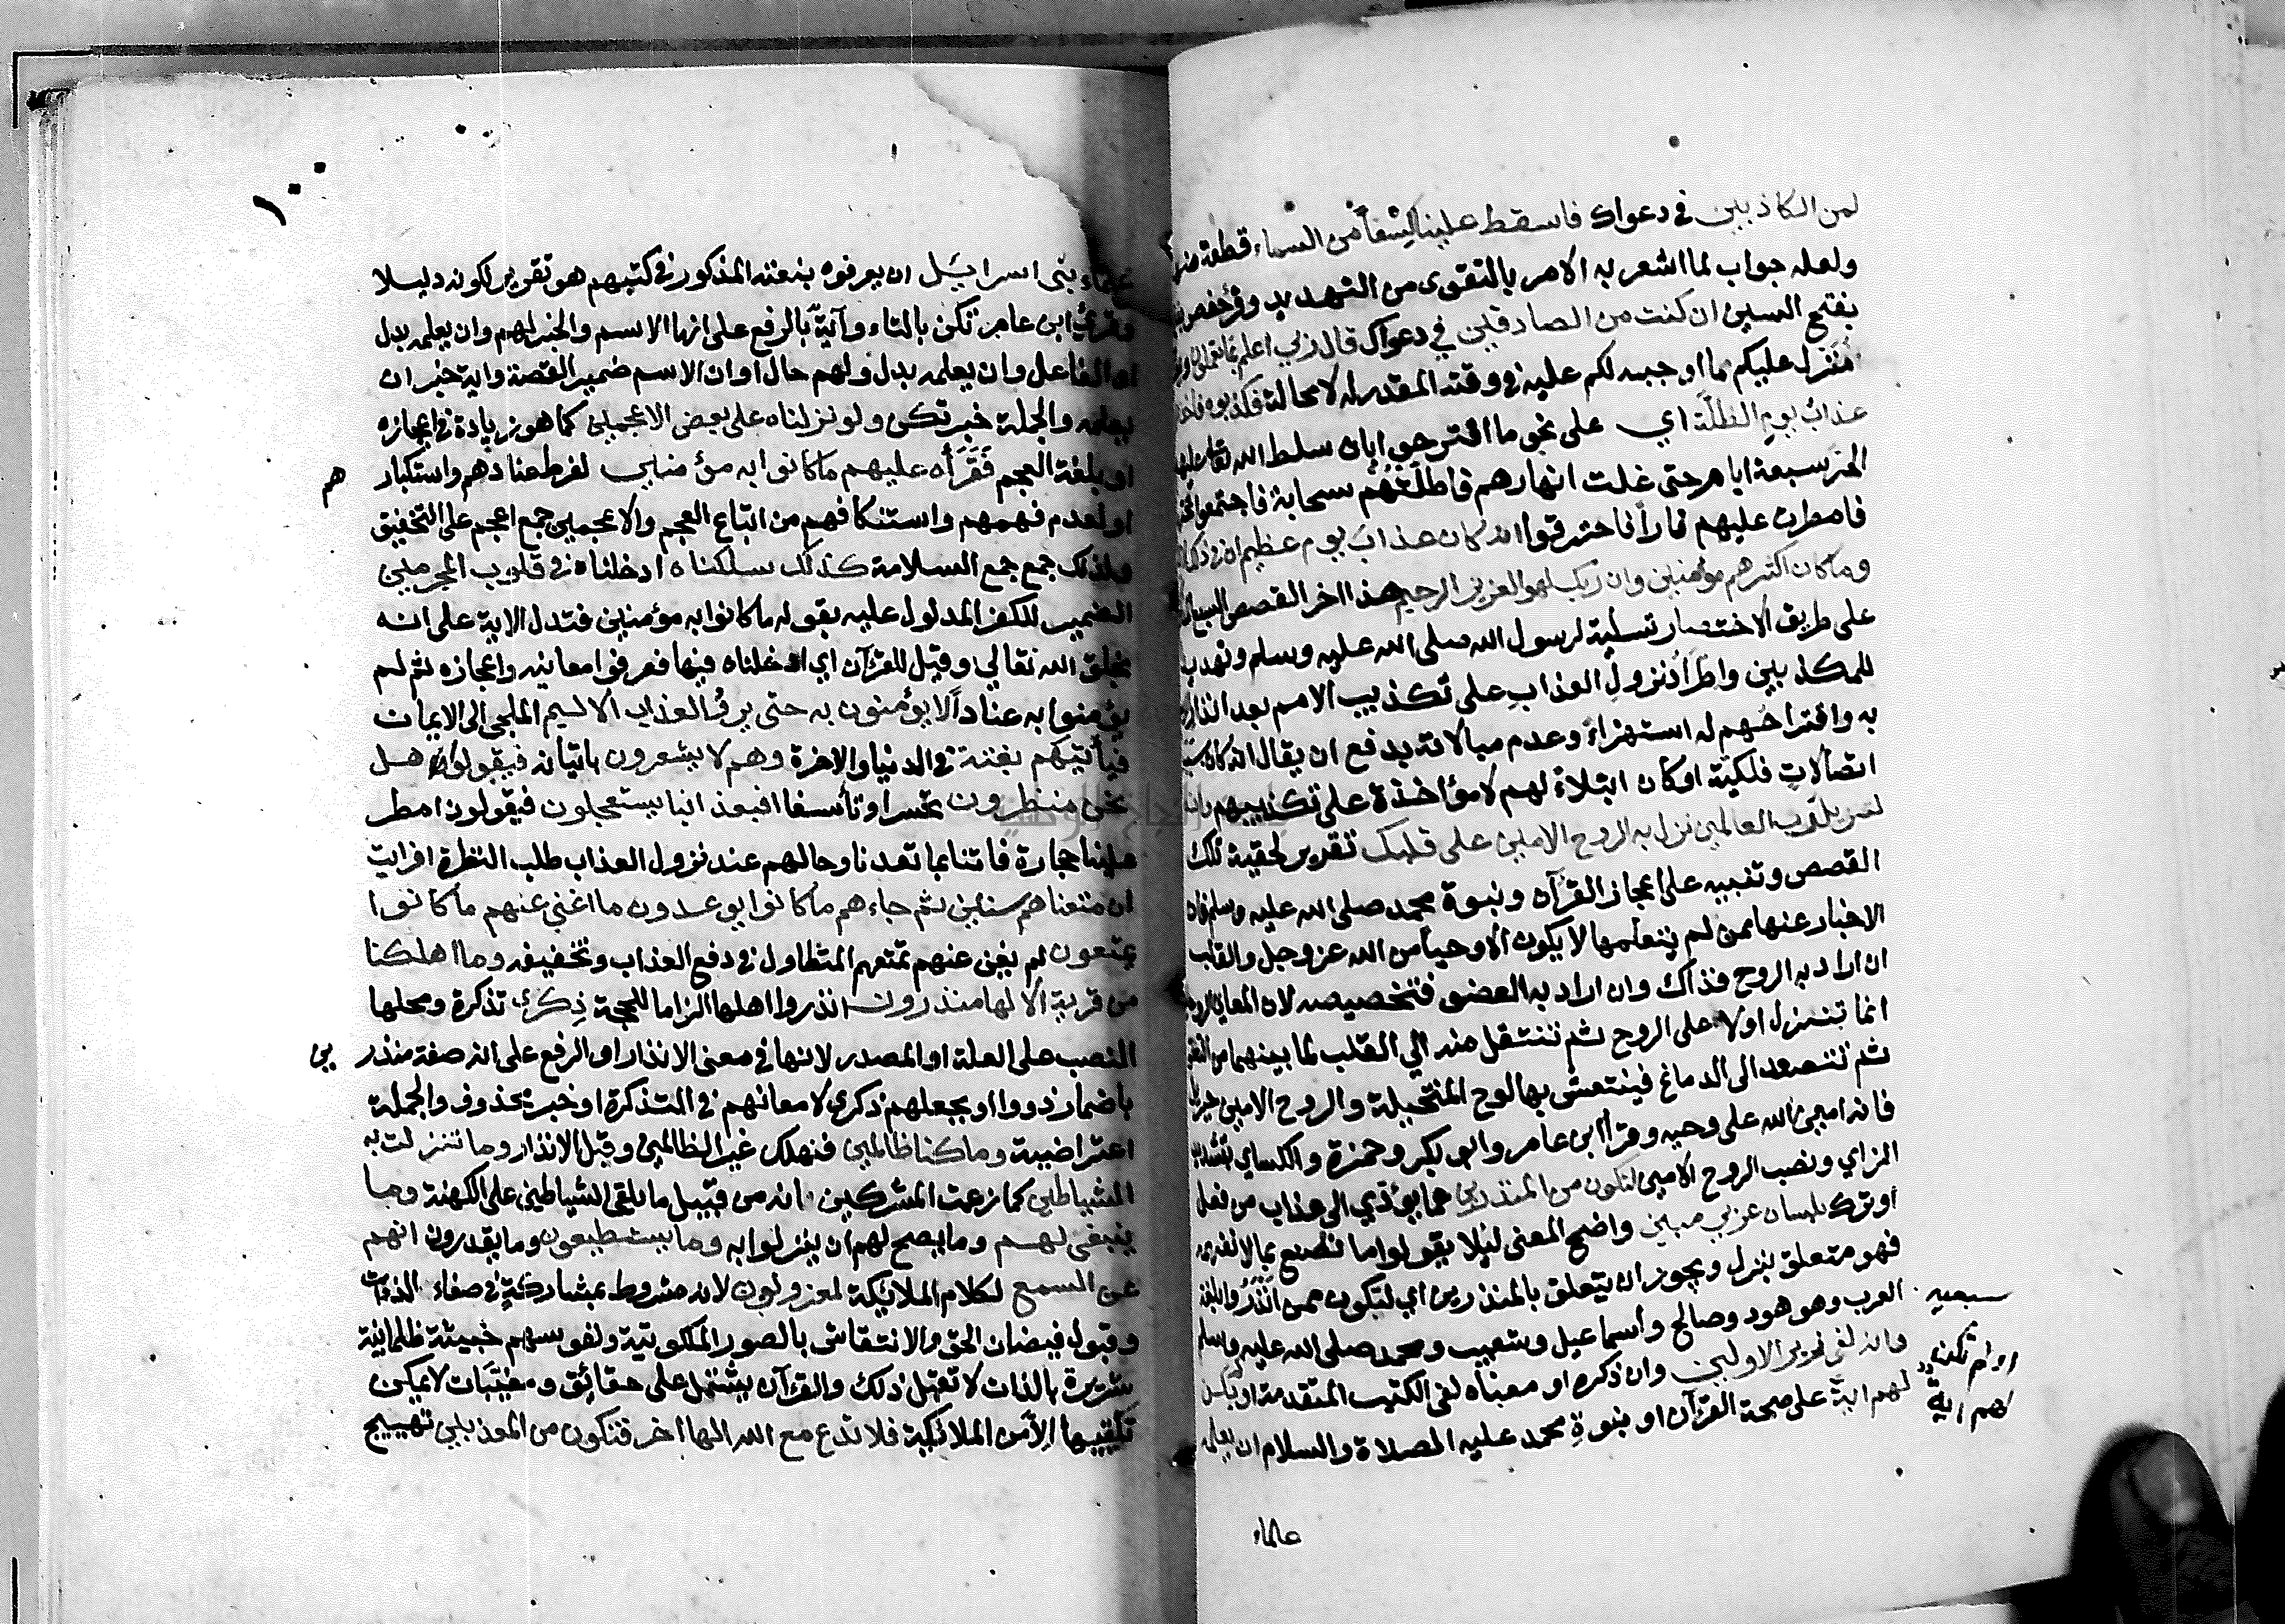 لمن الكاذبين في دعواك فاسقط علينا كسفا من السماء قطعة منها
ولعله جواب لما اشعر به الامر بالتقوى من التهديد وقرأ حفص
بفتح السين ان كنت من الصادقين في دعواك قال ربي اعلم بما تعملون
منزل عليكم مما اوجبه لكم عليه في وقته المقدر له لا محالة فكذبوه فاخذهم
عذاب يوم الظلة اي على نحو ما اقترحوا بان سلط الله تعالى عليهم
الحر سبعة ايام حتى غلت انهارهم فاظلتهم سحابة فاجتمعوا تحتها
فامطرت عليهم نارا فاحترقوا انه كان عذاب يوم عظيم ان في ذلك
وما كان اكثرهم مؤمنين وان ربك لهو العزيز الرحيم هذا اخر القصص السبع
على طريق الاختصار تسلية لرسول الله صلى الله عليه وسلم وتهديد
للمكذبين واطراد نزول العذاب على تكذيب الامم بعد انذار
به واقتراحهم له استهزاء وعدم مبالاة به يدفع ان يقال انه كان
اتصالات فلكية او كان ابتلاء لهم لا مؤاخذة على تكذيبهم وانه
لتنزيل رب العالمين نزل به الروح الامين على قلبك تقرير لحقية تلك
القصص وتنبيه على اعجاز القرآن ونبوة محمد صلى الله عليه وسلم فان
الاخبار عنها ممن لم يتعلمها لا يكون الا وحيا من الله عز وجل والقلب
ان اراد به الروح فذاك وان اراد به العضو فتخصيصه لان المعاني
انما تتنزل اولا على الروح ثم تنتقل منه الي القلب لما بينهما من
ثم تتصعد الى الدماغ فينتقش بها لوح المتخيلة والروح الامين جبريل
فانه امين الله على وحيه وقرأ ابن عامر وابو بكر وحمزة والكساي بتشديد
الزاي ونصب الروح الامين لتكون من المنذرين مما يؤدي الى عذاب من فعل
او ترك بلسان عربي مبين واضح المعنى ليلا يقولوا ما نصنع بما لا نفهمه
فهو متعلق بنزل ويجوز ان يتعلق بالمنذرين اي لتكون ممن انذروا بلغة
العرب وهو هود وصالح واسماعيل وشعيب ومحمد صلى الله عليه وسلم
وانه لفي زبر الاولين وان ذكره او معناه لفى الكتب المتقدمة او لم يكن
لهم اية على صحة القرآن او بنبوة محمد عليه الصلاة والسلام ان يعلمه
او لم تكن
لهم اية
علماء
١٠٠
علماء بنى اسرايل ان يعرفوه بنعته المذكور في كتبهم هو تقرير لكونه دليلا
وقرئ ابن عامر تكن بالتاء وآية بالرفع على انها الاسم والخبر لهم وان يعلمه بدل
او الفاعل وان يعلمه بدل ولهم حال او ان الاسم ضمير القصة واية خبر ان
يعلمه والجملة خبر تكن ولو نزلناه على بعض الاعجمين كما هو زيادة في اعجازه
او بلغة العجم فقرأه عليهم ما كانوا به مؤمنين لفرط عنادهم واستكبار
هم
او لعدم فهمهم واستنكافهم من اتباع العجم والاعجمين جمع اعجم على التخفيف
ولذلك جمع جمع السلامة كذلك سلكناه ادخلناه في قلوب المجرمين
الضمير للكفر المدلول عليه بقوله ما كانوا به مؤمنين فتدل الاية على انه
بخلق الله تعالي وقيل للقرآن اي ادخلناه فيها فعرفوا معانيه واعجازه ثم لم
يؤمنوا به عنادا لا يؤمنون به حتى يروا العذاب الاليم الملجي الى الايمان
فيأتيهم بغتة في الدنيا والاخرة وهم لا يشعرون باتيانه فيقولوا هل
نحن منظرون تحسرا وتأسفا افبعذابنا يستعجلون فيقولون امطر
علينا حجارة فاتنا بما تعدنا وحالهم عند نزول العذاب طلب النظرة افرايت
ان متعناهم سنين ثم جاءهم ما كانوا يوعدون ما اغنى عنهم ما كانوا
يمتعون لم يغن عنهم تمتعهم المتطاول في دفع العذاب وتخفيفه وما اهلكنا
من قرية الا لها منذرون انذروا اهلها الزاما للحجة ذكرى تذكرة ومحلها
النصب على العلة او المصدر لانها في معنى الانذار او الرفع على انه صفة منذر
ين
باضمار ذووا او بجعلهم ذكرى لامعانهم في التذكرة او خبر محذوف والجملة
اعتراضية وما كنا ظالمين فنهلك غير الظالمين وقيل الانذار وما تنزلت به
الشياطين كما زعمت المشركين انه من قبيل ما يلقى الشياطين على الكهنة وما
ينبغى لهم وما يصح لهم ان ينزلوا به وما يستطيعون وما يقدرون انهم
عن السمع لكلام الملايكة لمعزولون لانه مشروط بمشاركة في صفاء الذات
وقبول فيضان الحق والانتقاش بالصور الملكوتية ونفوسهم خبيثة ظلمانية
شريرة بالذات لا تقبل ذلك والقرآن يشتمل على حقائق ومغيبات لا يمكن
تلقيها الا من الملائكة فلا تدع مع الله الها اخر فتكون من المعذبين تهييج